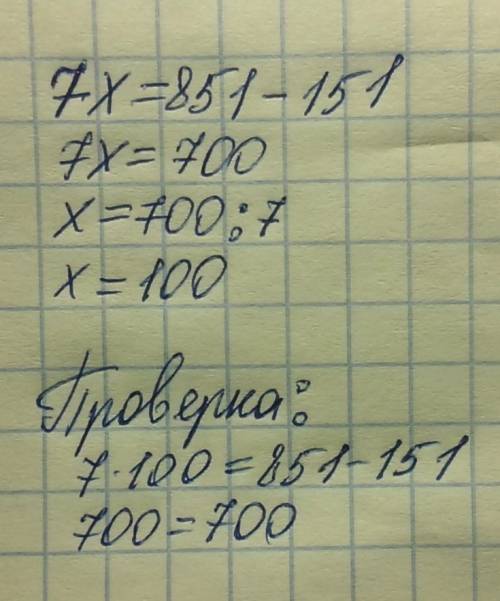 7x=851-151
7x=700
x=700:7
x=100
Проверка:
7·100=851-151
700=700